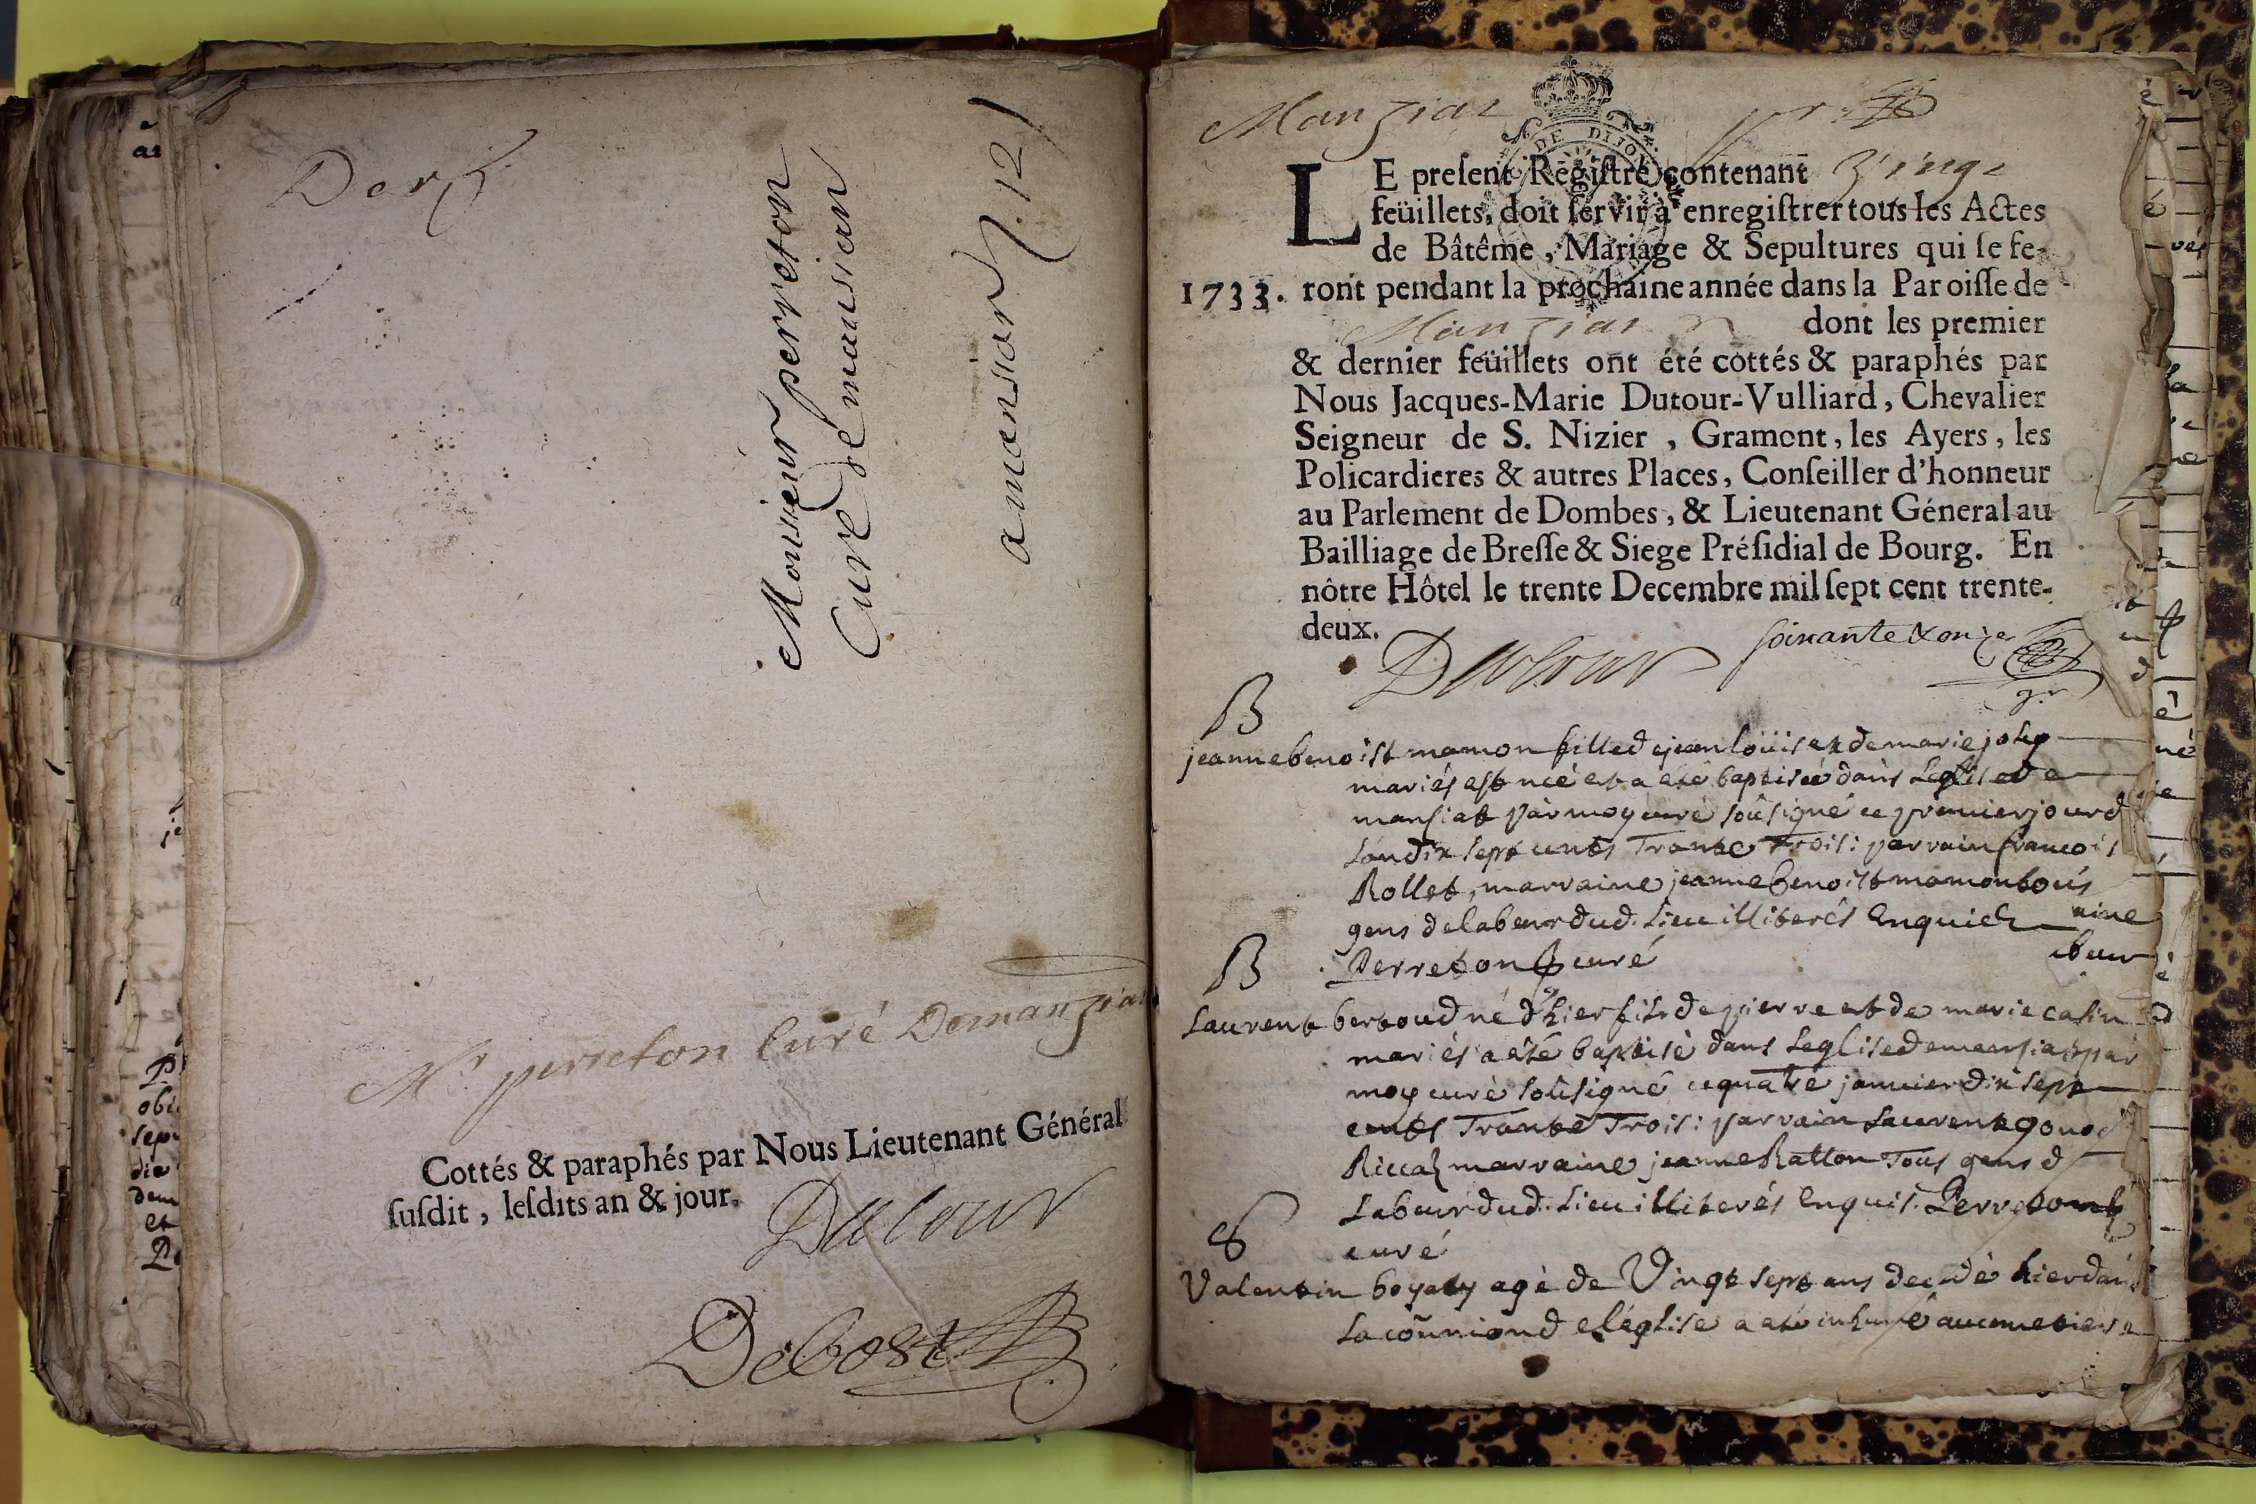 Monsieur perreton
Curé de mansian
amansian 12
Mr perreton Curé Demanzia
Cottés & paraphés par Nous Lieutenant Général
susdit, lesdits an & jour.
Dutour
Debost
Manziat
DE DIJON
LE present Registre contenant
feüillets, doit servir à enregistrer tous les Actes
de Bâtême, Mariage & Sepultures qui se fe-
1733. ront pendant la prochaine année dans la Paroisse de
Manziat dont les premier
& dernier feüillets ont été cottés & paraphés par
Nous Jacques-Marie Dutour-Vulliard, Chevalier
Seigneur de S. Nizier, Gramont, les Ayers, les
Policardieres & autres Places, Conseiller d'honneur
au Parlement de Dombes, & Lieutenant Géneral au
Bailliage de Bresse & Siege Présidial de Bourg. En
nôtre Hôtel le trente Decembre mil sept cent trente-
deux.
Dutour soixante & onze
B
jeanne benoist mamon fille de jean loüis et de marie joly
mariés est neé et a eté baptiseé dans Leglise de
mansiat par moy curé soûsigné ce premier jour d
Lan dix sept cents Trante Trois: parrain francois
Rollet, marraine jeanne benoist mamon tous
gens de labeur dud. Lieu illiterés Enquis
Perreton curé
B
Laurent bertoud né d'hier fils de pierre et de marie catin
mariés a eté baptisé dans Leglise de mansiat par
moy curé soûsigné ce quatre janvier dix sept
cents Trante Trois: parrain Laurent gonod
Riccas marraine jeanne Ratton Tous gens d
Labeur dud. Lieu illiterés Enquis. Perreton
curé
S
Valentin boyaty agé de Vingt sept ans decedé hier dans
La com̃union de l'église a eté inhumé au cimetiere